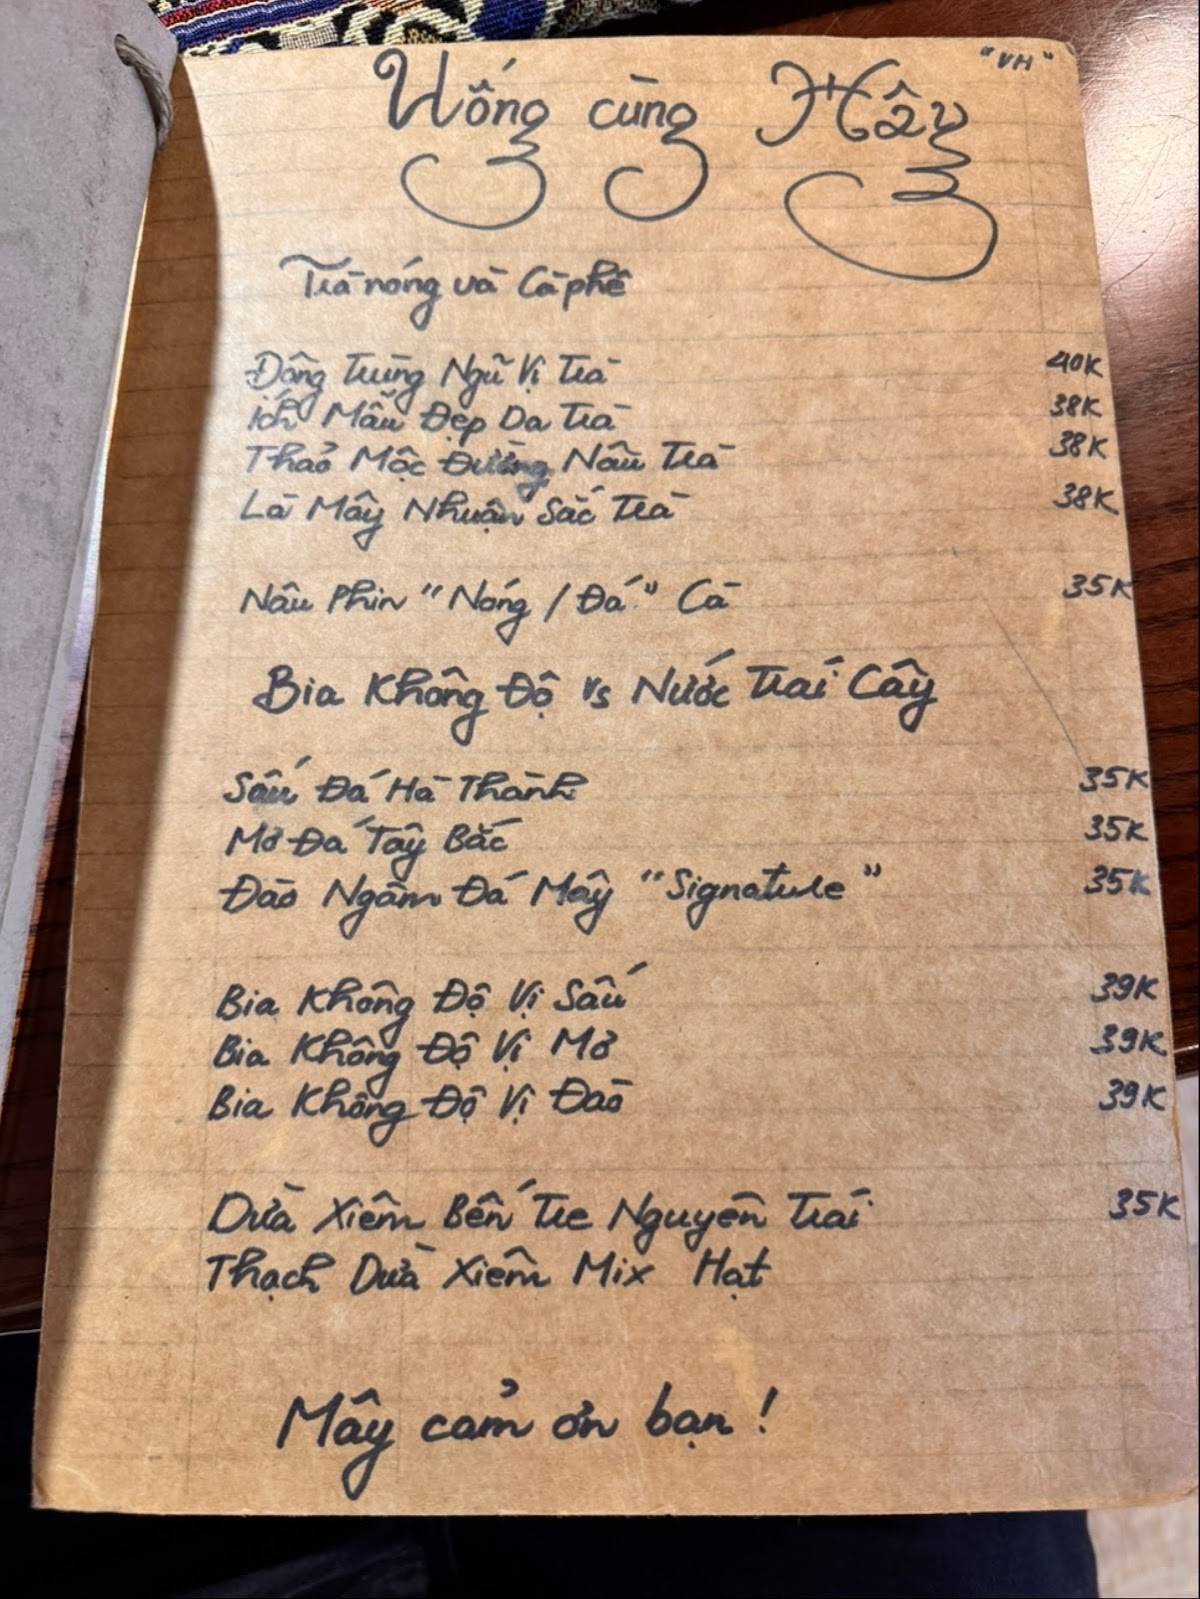 "VH"
Uống cùng Mây
Trà nóng và Cà phê
Đông Trùng Ngũ Vị Trà 40K
Ích Mẫu Đẹp Da Trà 38K
Thảo Mộc Đường Nâu Trà 38K
Là Mây Nhuận Sắc Trà 38K
Nâu Phin "Nóng / Đá" Cà 35K
Bia Không Độ vs Nước Trái Cây
Sấu Đá Hà Thành 35K
Mơ Đá Tây Bắc 35K
Đào Ngâm Đá Mây "Signature" 35K
Bia Không Độ Vị Sấu 39K
Bia Không Độ Vị Mơ 39K
Bia Không Độ Vị Đào 39K
Dừa Xiêm Bến Tre Nguyên Trái 35K
Thạch Dừa Xiêm Mix Hạt
Mây cảm ơn bạn !